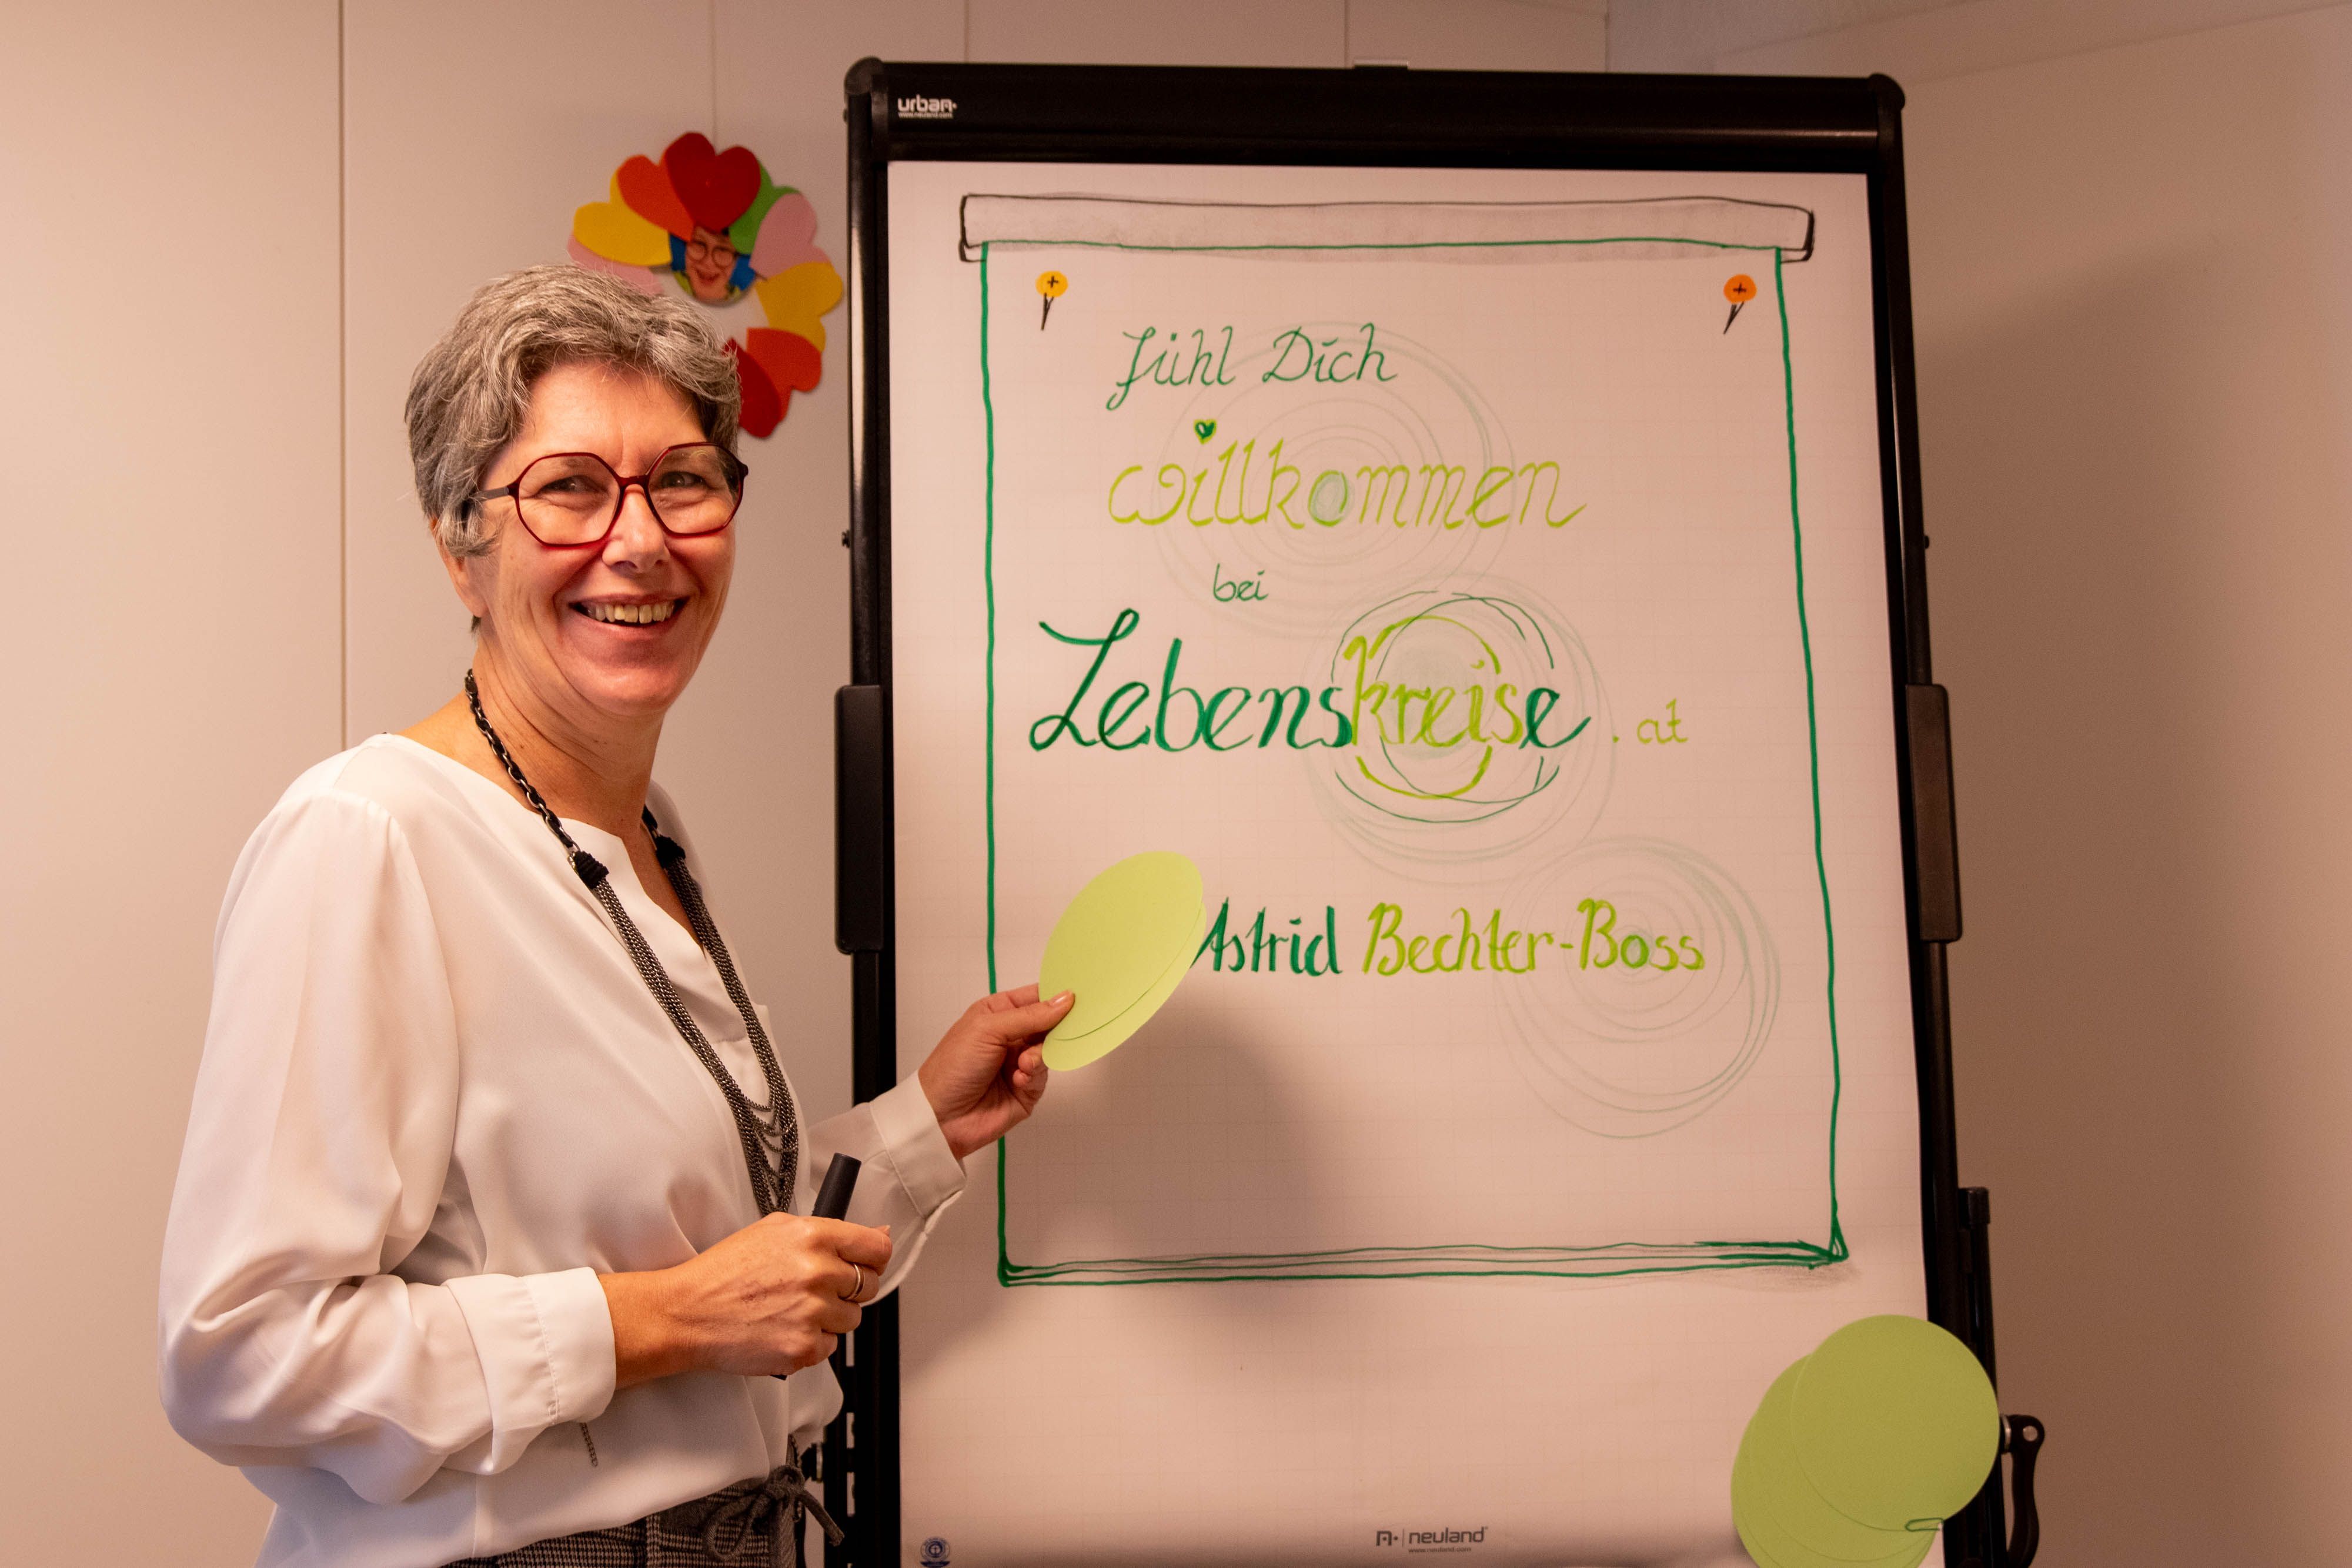 urban
www.neuland.com
fühl Dich
willkommen
bei
Lebenskreise.at
Astrid Bechter-Boss
neuland
www.neuland.com